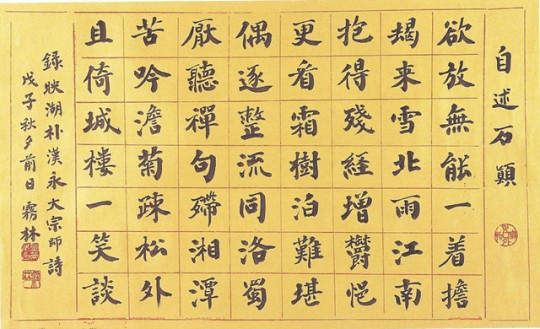 自述石顚
欲放無能一着擔
朅来雪北雨江南
抱得殘經增欝悒
更看霜樹泊難堪
偶逐整流同洛蜀
厭聽禪句殢湘潭
苦吟澹菊疎松外
且倚城樓一笑談
錄映湖朴漢永大宗師詩
戊子秋夕前日霧林